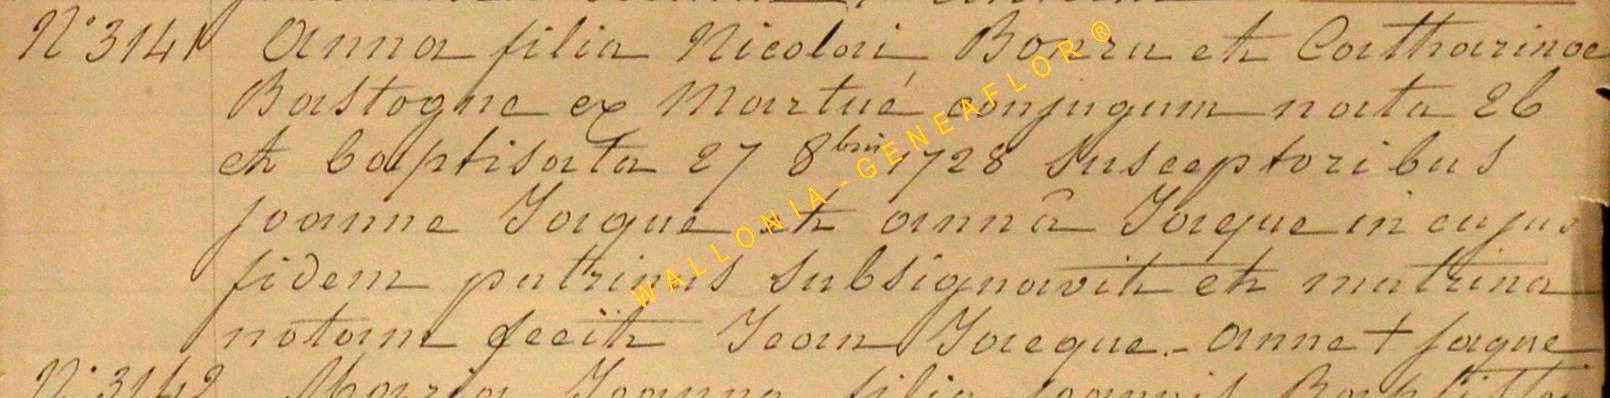 N° 3141 Anna filia Nicolai Bouru et Catharinae
Bastogne ex Martué conjugum nata 26
et baptisata 27 8bris 1728 Susceptoribus
joanne Jaque et anna Jaque in cujus
fidem patrinus subsignavit et matrina
notam fecit Jean Jacque. - anne + jaque
N° 3142 Maria Joanna filia joannis Baptistae
WALLONIA-GENEAFLOR®